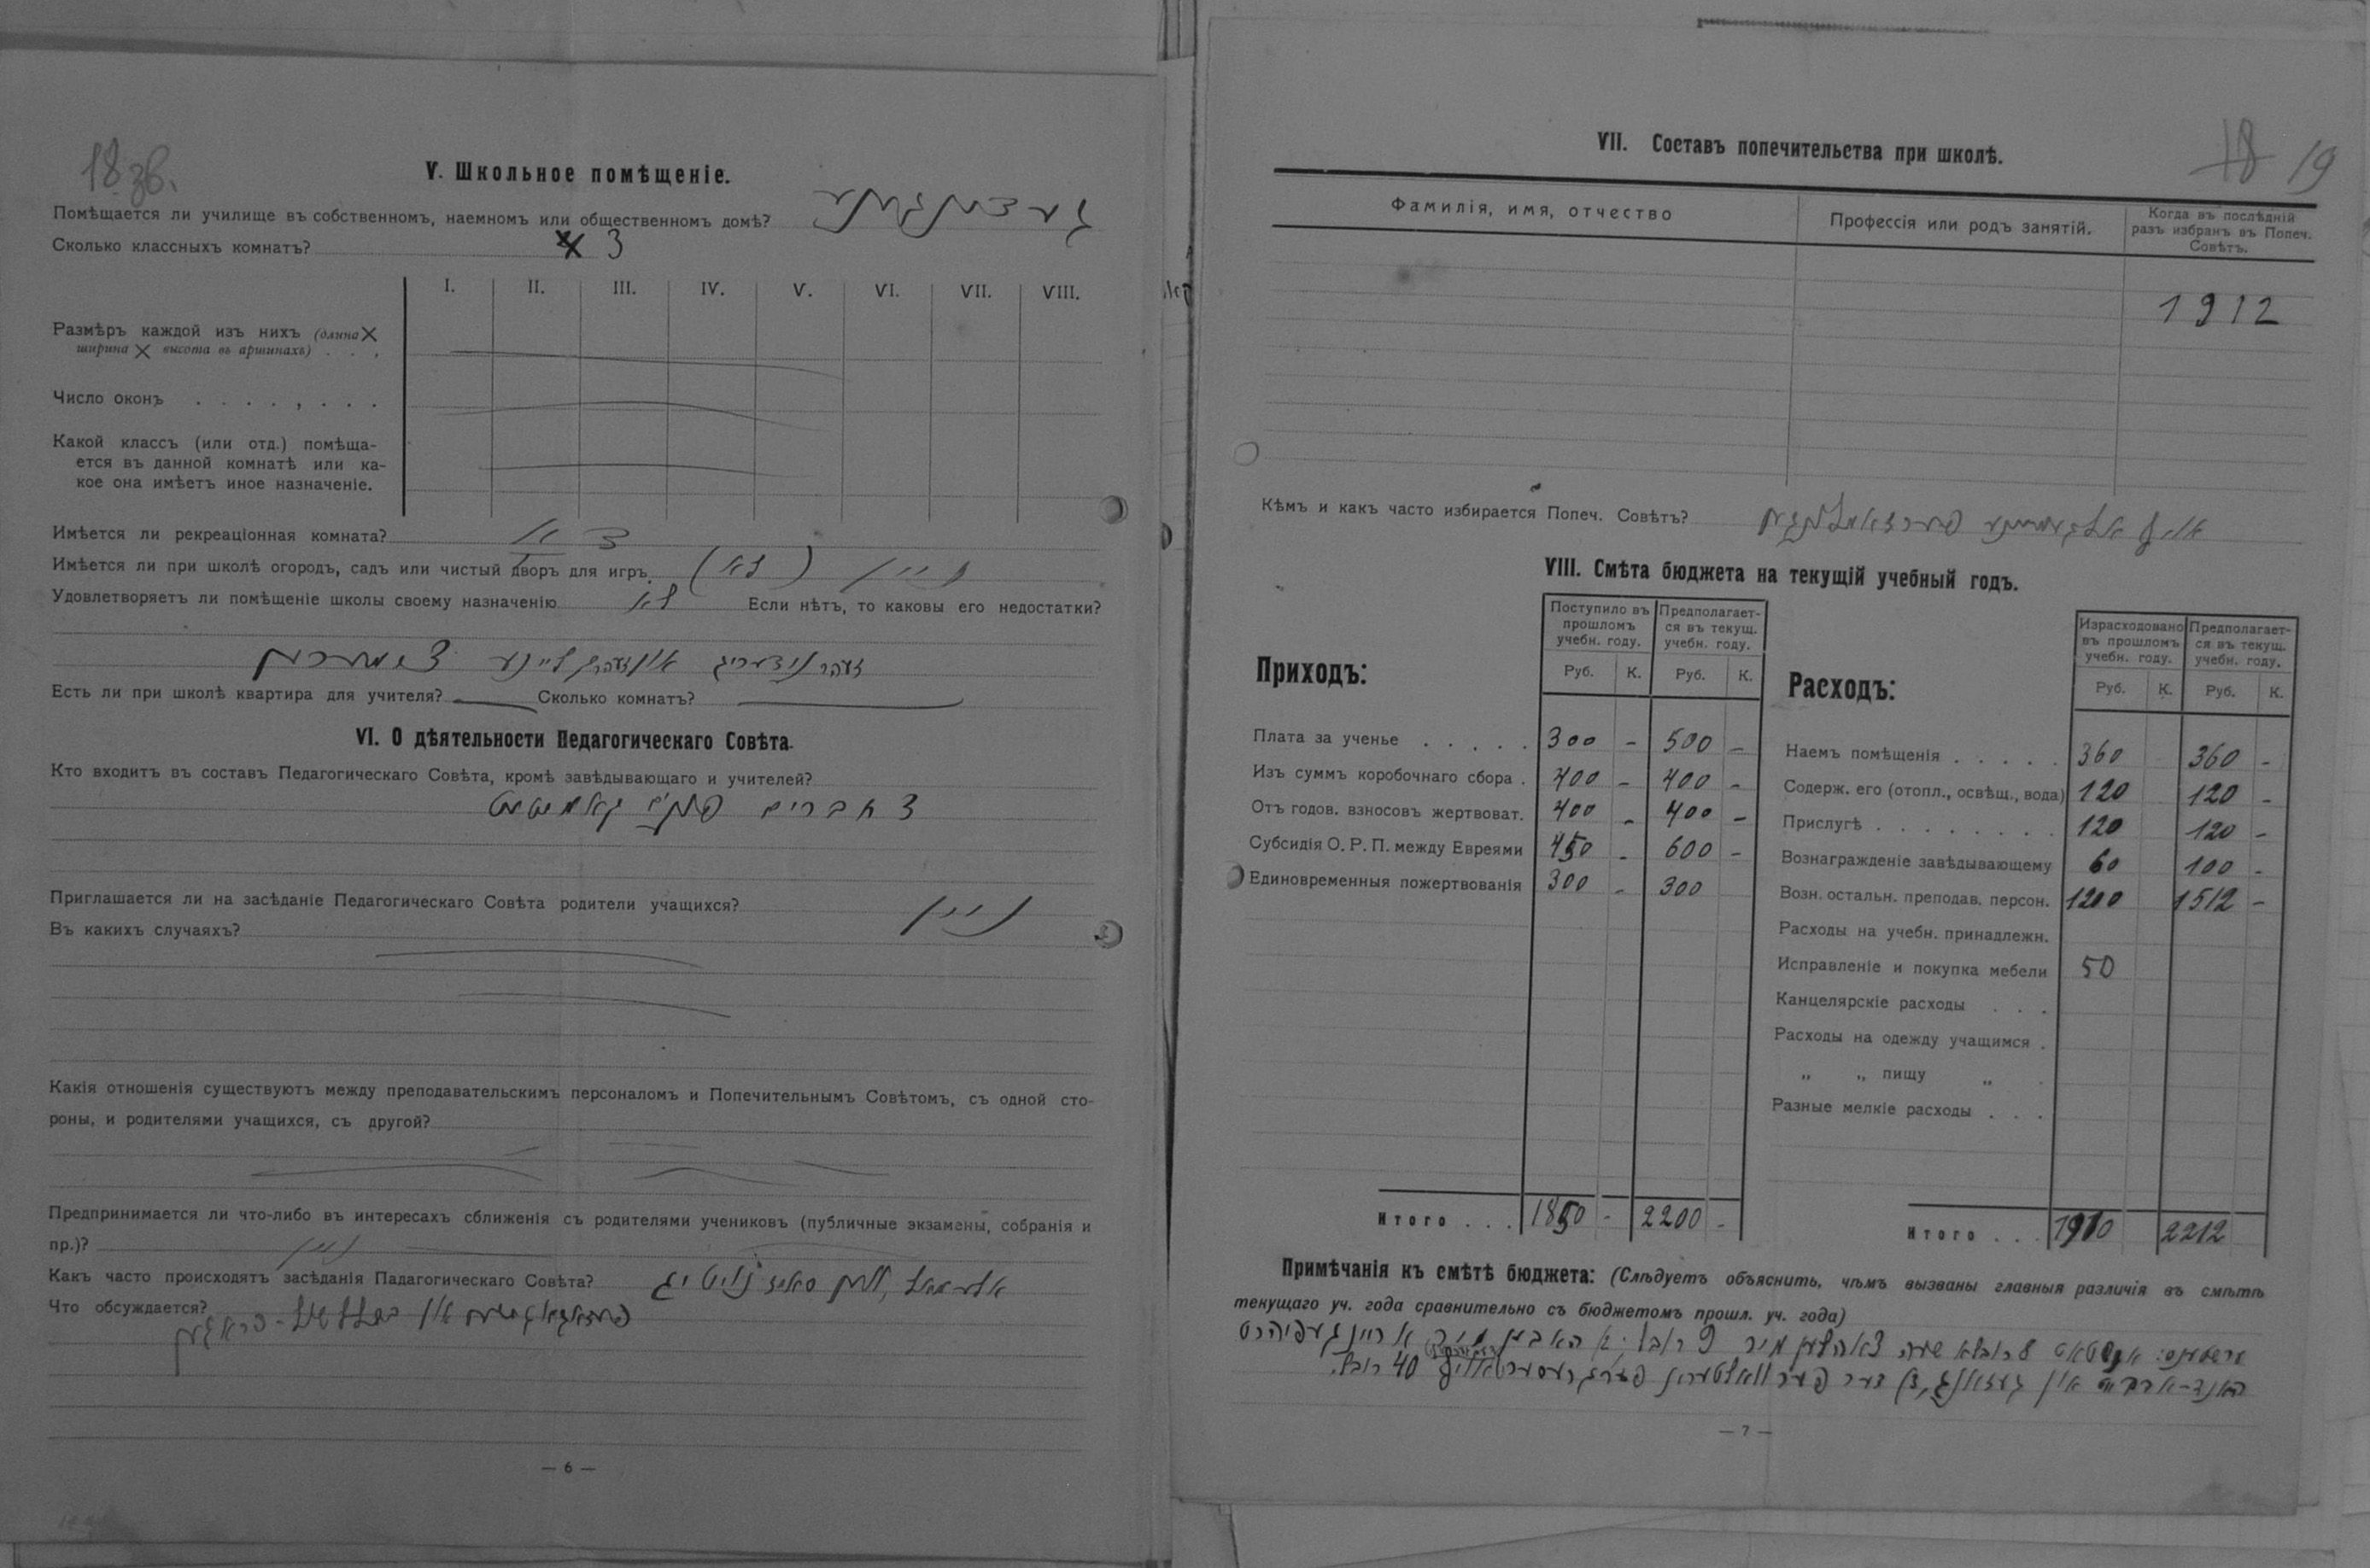 18 об.
V. Школьное помѣщеніе.
Помѣщается ли училище въ собственномъ, наемномъ или общественномъ домѣ? געדונגענע
Сколько классныхъ комнатъ? 3
I. II. III. IV. V. VI. VII. VIII.
Размѣръ каждой изъ нихъ (длина X
ширина X высота въ аршинахъ) . . .
Число оконъ . . . . , . . .
Какой классъ (или отд.) помѣща-
ется въ данной комнатѣ или ка-
кое она имѣетъ иное назначеніе.
Имѣется ли рекреаціонная комната?
Имѣется ли при школѣ огородъ, садъ или чистый дворъ для игръ. ניין
Удовлетворяетъ ли помѣщеніе школы своему назначенію Если нѣтъ, то каковы его недостатки?
זעהר נידעריג און זעהר קליינע צימערען
Есть ли при школѣ квартира для учителя? Сколько комнатъ?
VI. О дѣятельности Педагогическаго Совѣта.
Кто входитъ въ составъ Педагогическаго Совѣта, кромѣ завѣдывающаго и учителей?
3 חברים פונ'ם קאמיטעט
Приглашается ли на засѣданіе Педагогическаго Совѣта родители учащихся? ניין
Въ какихъ случаяхъ?
Какія отношенія существуютъ между преподавательскимъ персоналомъ и Попечительнымъ Совѣтомъ, съ одной сто-
роны, и родителями учащихся, съ другой?
Предпринимается ли что-либо въ интересахъ сближенія съ родителями учениковъ (публичные экзамены, собранія и
пр.)? ניין
Какъ часто происходятъ засѣданія Падагогическаго Совѣта? אלעמאל, ווען ס'איז נויטיג
Что обсуждается? פעדאגאגישע און
פראגען
— 6 —
18 19
VII. Составъ попечительства при школѣ.
Фамилія, имя, отчество
Профессія или родъ занятій.
Когда въ послѣдній
разъ избранъ въ Попеч.
Совѣтъ.
1912
Кѣмъ и какъ часто избирается Попеч. Совѣтъ? אויף אלגעמיינע פערזאמלונגען
VIII. Смѣта бюджета на текущій учебный годъ.
Приходъ:
Поступило въ прошломъ учебн. году. Предполагает-ся въ текущ. учебн. году.
Руб. К. Руб. К.
Плата за ученье . . . . . 300 – 500 –
Изъ суммъ коробочнаго сбора . 400 – 400 –
Отъ годов. взносовъ жертвоват. 400 – 400 –
Субсидія О. Р. П. между Евреями 450 – 600 –
Единовременныя пожертвованія 300 – 300
Итого . . . 1850 – 2200 –
Расходъ:
Израсходовано въ прошломъ учебн. году. Предполагает-ся въ текущ. учебн. году.
Руб. К. Руб. К.
Наемъ помѣщенія . . . . . 360 360 –
Содерж. его (отопл., освѣщ., вода) 120 120 –
Прислугѣ . . . . . . . . 120 120 –
Вознагражденіе завѣдывающему 60 100 –
Возн. остальн. преподав. персон. 1200 1512 –
Расходы на учебн. принадлежн.
Исправленіе и покупка мебели 50
Канцелярскіе расходы . . .
Расходы на одежду учащимся .
„ „ пищу „ .
Разные мелкіе расходы . . .
Итого . . . 1910 2212
Примѣчанія къ смѣтѣ бюджета: (Слѣдуетъ объяснить, чѣмъ вызваны главныя различія въ смѣтѣ
текущаго уч. года сравнительно съ бюджетомъ прошл. уч. года)
צאהלען מיר 9 רובל; האבען מיר אריינגעפיהרט
האנד-ארבייט און געזאנג, פערגרעסערט אויף 40 רובל.
— 7 —